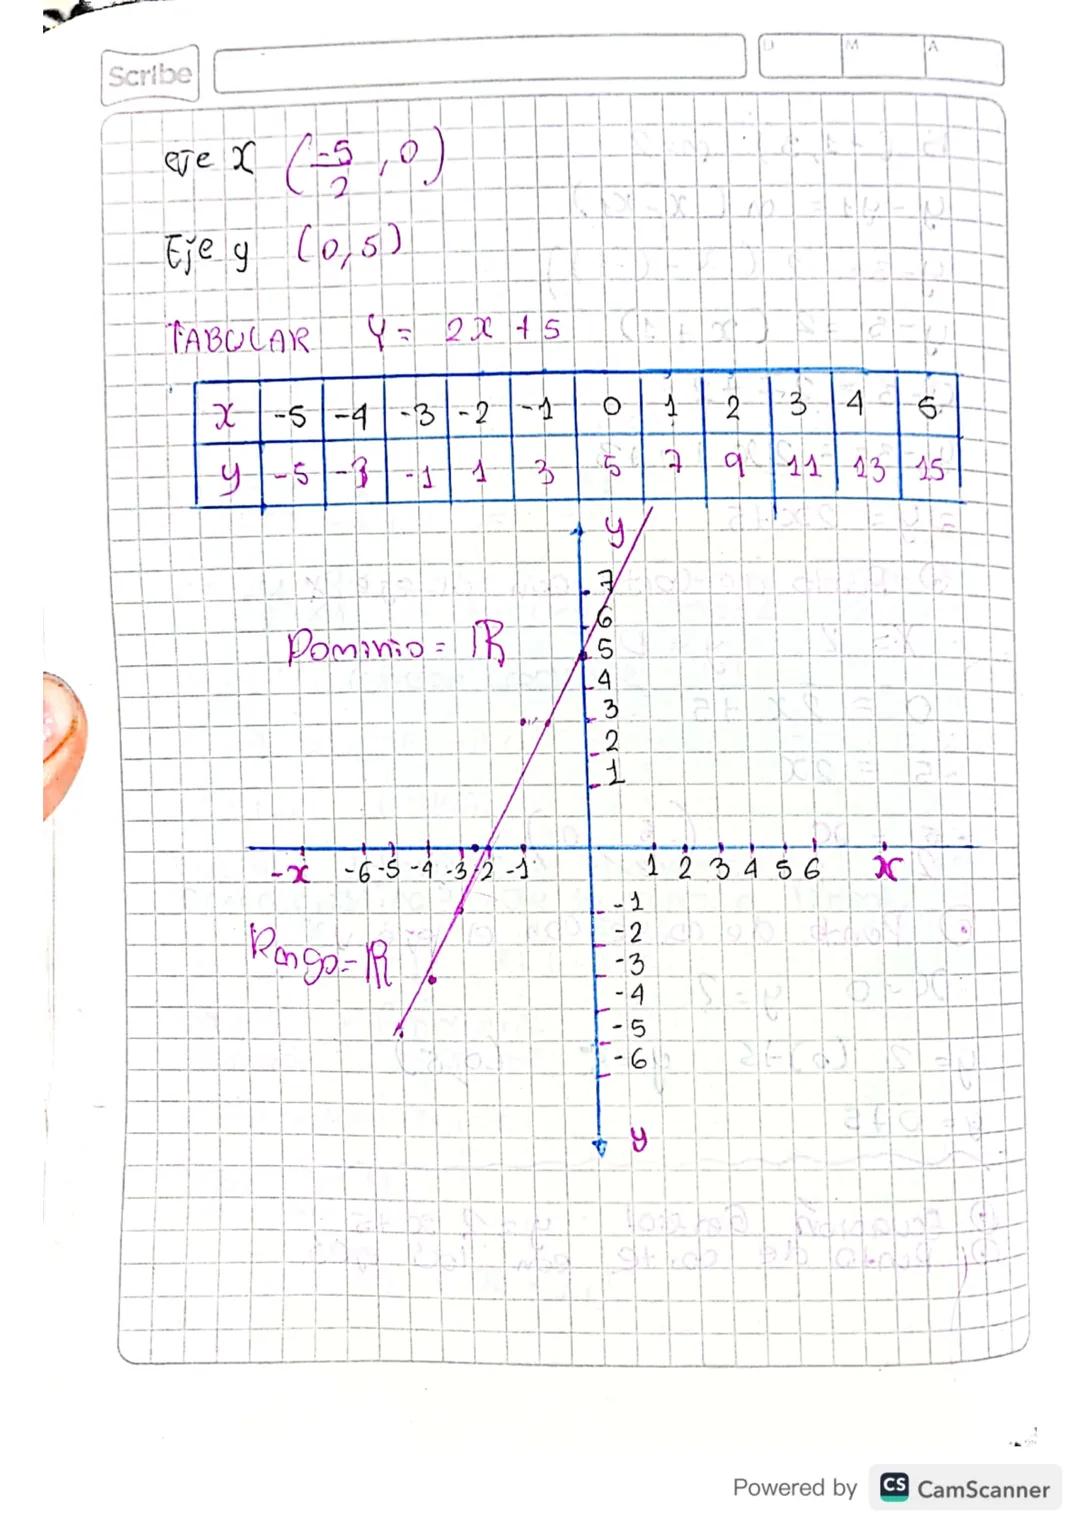 Scribe
D M A
eje x (-5/2 , 0)
Eje y (0,5)
TABULAR Y= 2x +5
x -5 -4 -3 -2 -1 0 1 2 3 4 5
y -5 -3 -1 1 3 5 7 9 11 13 15
y
7
6
Dominio = ℝ
5
4
3
2
1
-x -6 -5 -4 -3 -2 -1 1 2 3 4 5 6 x
-1
-2
Rango=ℝ
-3
-4
-5
-6
y
Powered by CS CamScanner